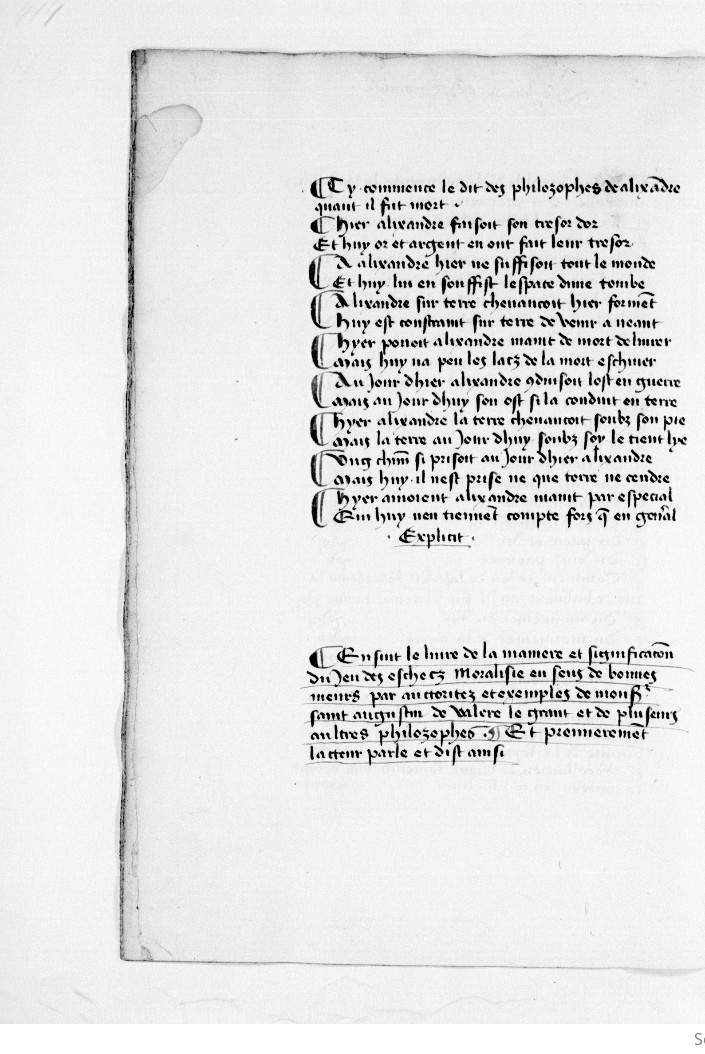 ¶ Cy commence le dit des philozophes de alixādre
quant il fut mort .
¶ Hier alixandre faisoit son tresor dor
Et huy or et argent en ont fait leur tresor
¶ A alixandre hier ne suffisoit tout le monde
Et huy lui en souffist lespace dune tombe
¶ Alixandre sur terre chevaucoit hier formēt
Huy est constraint sur terre de venir a neant
¶ Hyer povoit alixandre maint de mort delivrer
Mais huy na peu les lacz de la mort eschiver
¶ Au jour dhier alixandre ꝯduisoit lost en guerre
Mais au jour dhuy son ost si la conduit en terre
¶ Hyer alixandre la terre chevaucoit soubz son pie
Mais la terre au jour dhuy soubz soy le tient lye
¶ Ung chūn si prisoit au jour dhier alixandre
Mais huy il nest prise ne que terre ne cendre
¶ Hyer amoient alixandre maint par especial
Qui huy nen tiennēt compte fors q̄ en gen̄al
. Explicit .
¶ Ensuit le livre de la maniere et significatōn
du Jeu des eschecz Moralisie en sens de bonnes
meurs par auctoritez et exemples de mons̄r
saint augustin de Valere le grant et de pluseurs
aultres philozophes . Et premierement
lacteur parle et dist ainsi